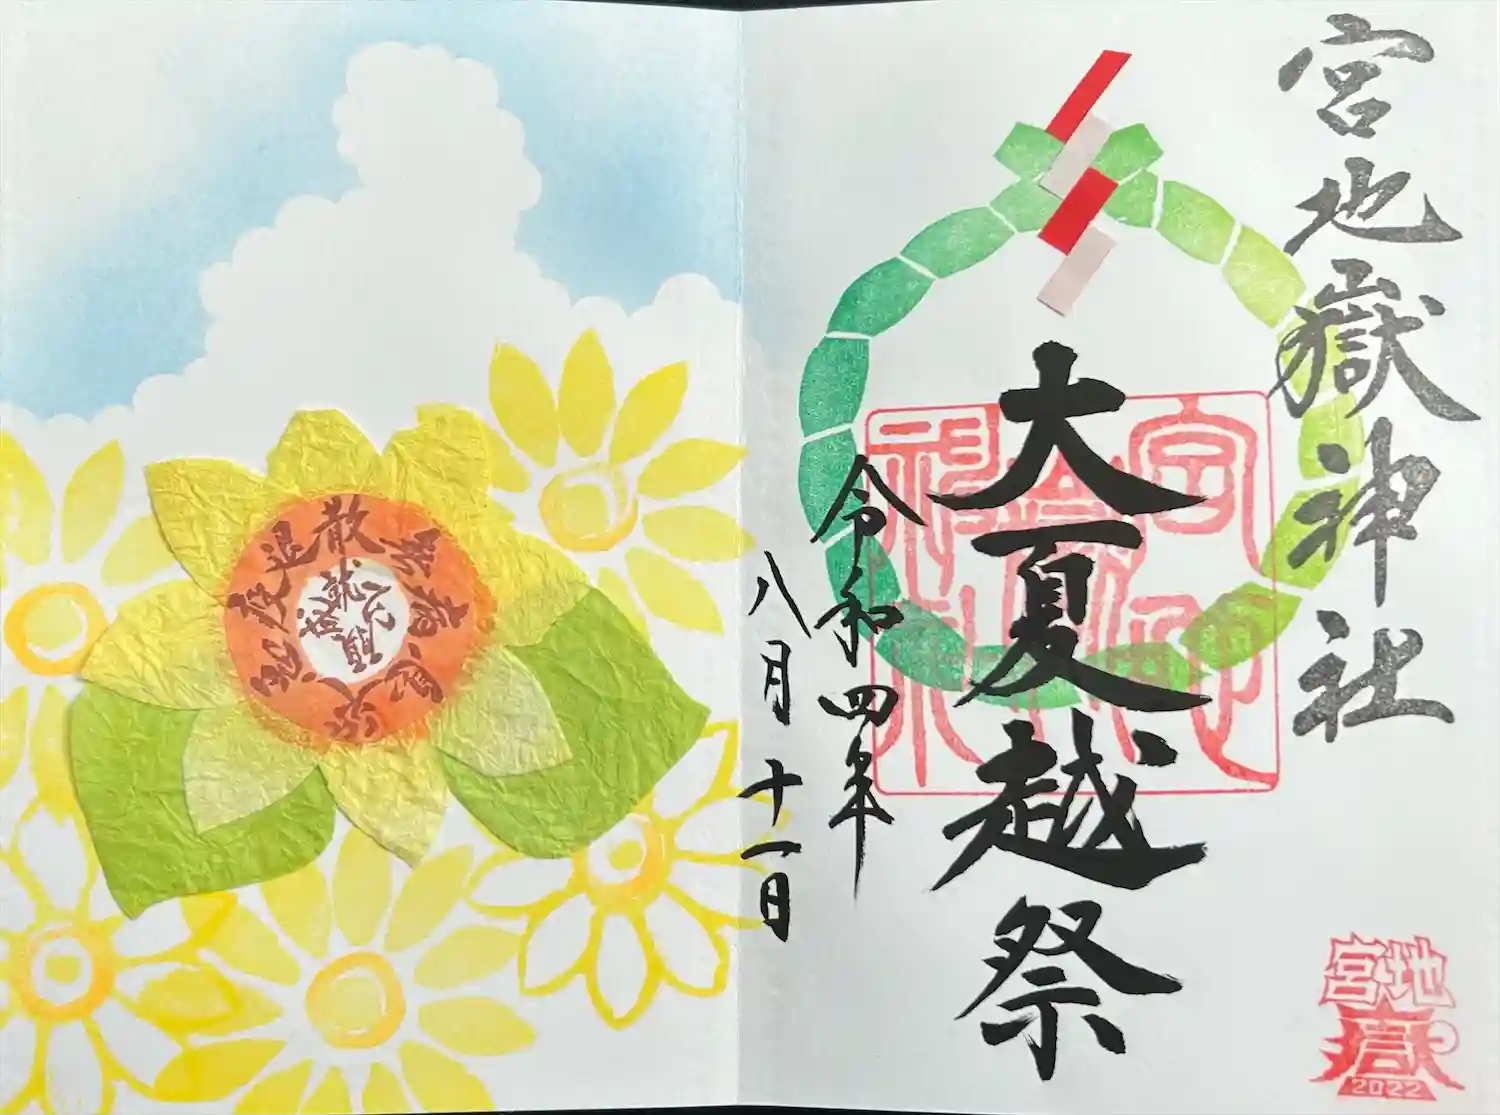 宮地嶽神社
大夏越祭
令和四年
八月十一日
宮地嶽神社
宮地嶽
2022
疫退散
心願
成就